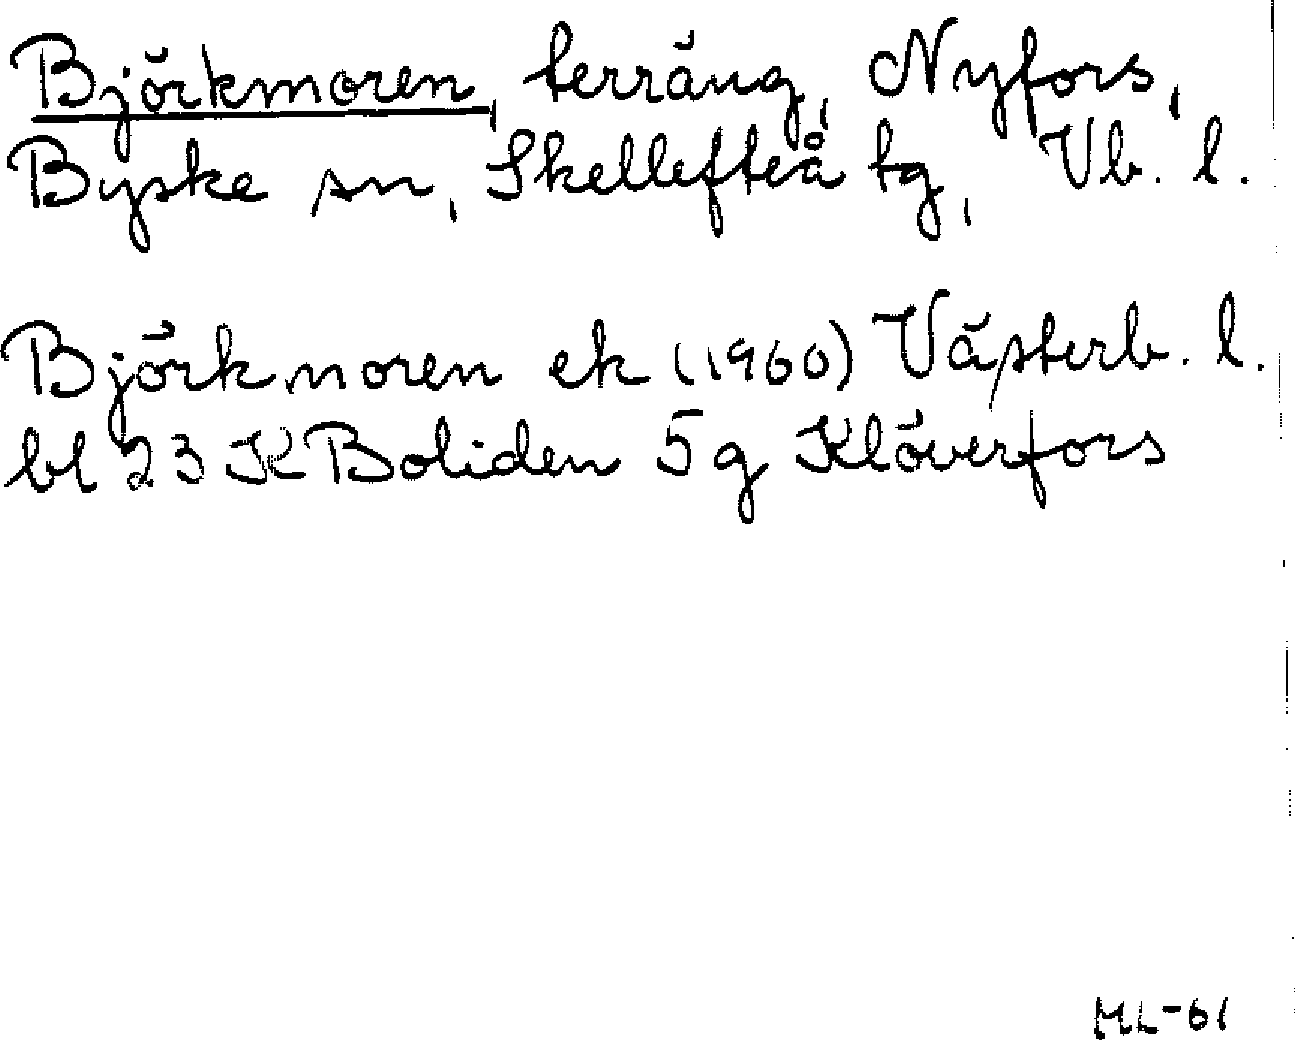 Björkmoren, terräng, Nyfors,
Byske sn, Skellefteå tg, Vb. l.
Björkmoren ek (1960) Västerb. l.
bl 23 K Boliden 5 g Klöverfors
ML-61